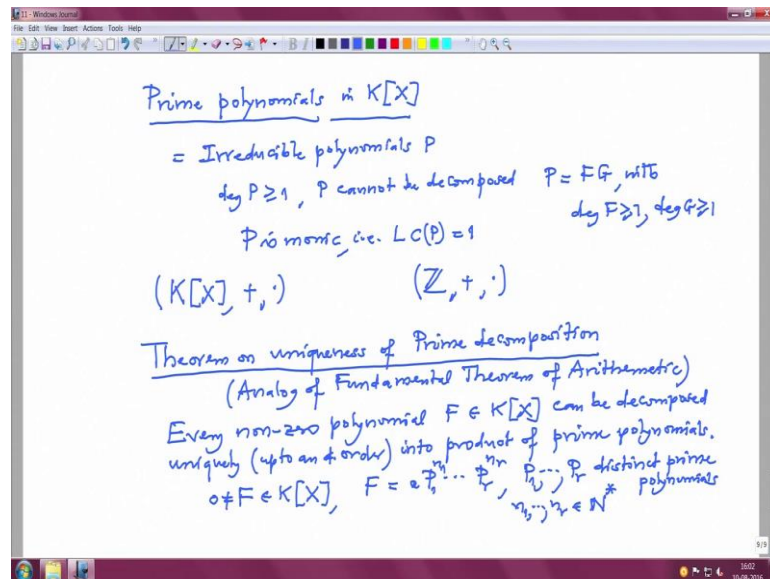 11 - Windows Journal
File Edit View Insert Actions Tools Help
Prime polynomials in K[X]
= Irreducible polynomials P
deg P ≥ 1, P cannot be decomposed P = FG, with
deg F ≥ 1, deg G ≥ 1
P is monic, i.e. LC(P) = 1
(K[X], +, ·) (ℤ, +, ·)
Theorem on uniqueness of Prime decomposition
(Analog of Fundamental Theorem of Arithemetic)
Every non-zero polynomial F ∈ K[X] can be decomposed
uniquely (upto an order) into product of prime polynomials.
0 ≠ F ∈ K[X], F = a P₁^n₁ ⋯ Pᵣ^nᵣ, P₁, ⋯, Pᵣ distinct prime
polynomials
n₁, ⋯, nᵣ ∈ ℕ*
9/9
16:02
10-08-2016